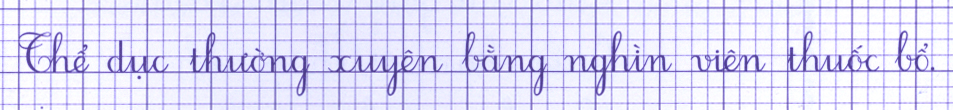 Thể dục thường xuyên bằng nghìn viên thuốc bổ.